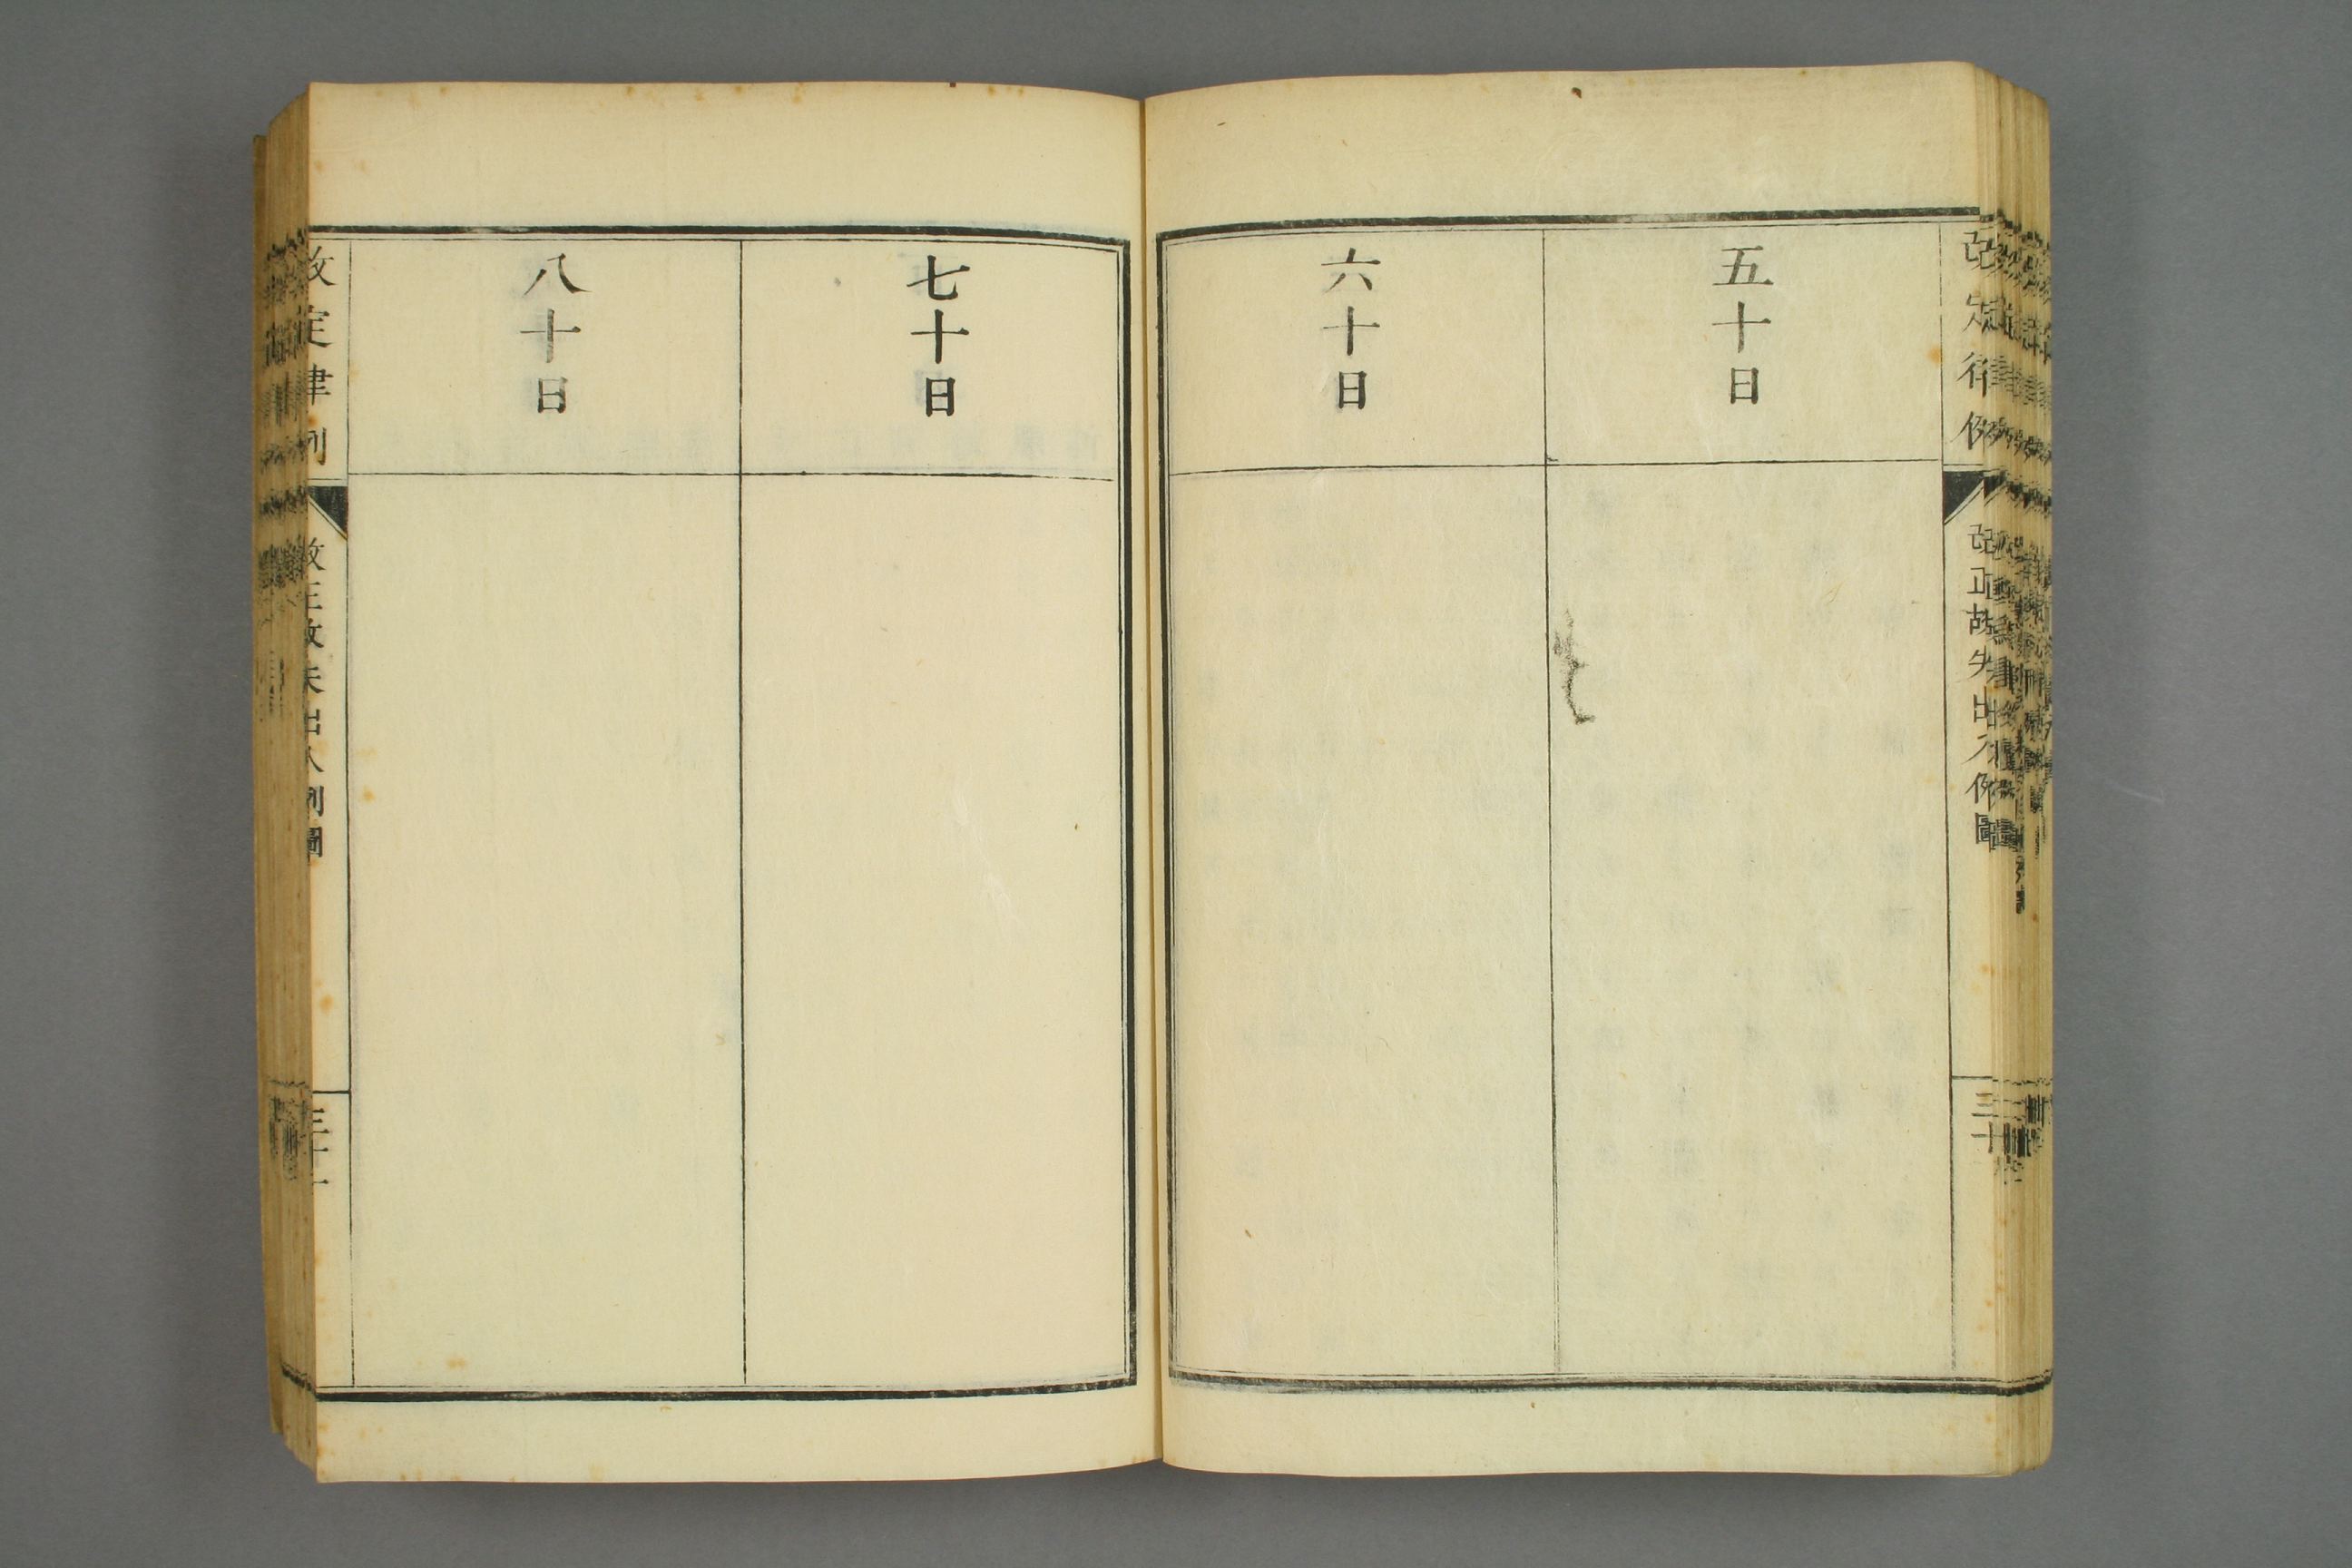 改定律例
改正故失出入例圖
三十
五十日
六十日
七十日
八十日
改定律例
改正故失出入例圖
三十一